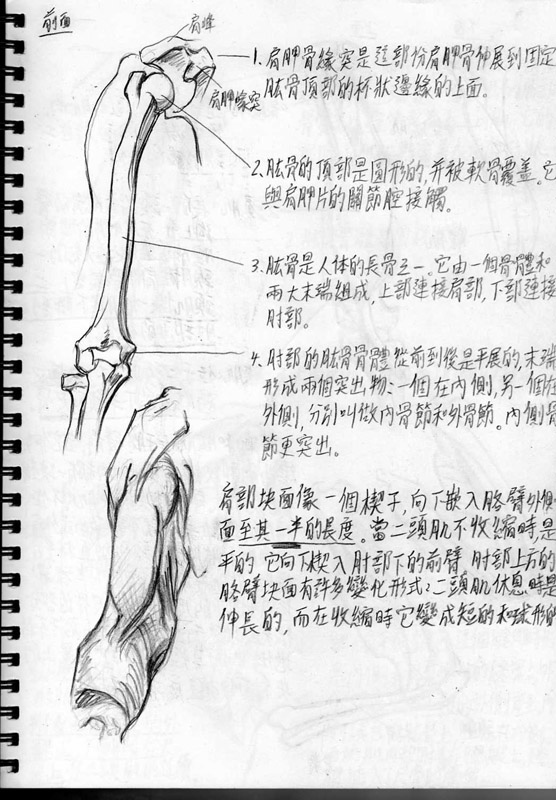 前面
肩峰
肩胛喙突
1. 肩胛骨喙突是這部份肩胛骨伸展到固定
肱骨頂部的杯狀邊緣的上面。
2. 肱骨的頂部是圓形的,并被軟骨覆蓋。它
與肩胛片的關節腔接觸。
3. 肱骨是人体的長骨之一。它由一個骨體和
兩大末端組成,上部連接肩部,下部連接
肘部。
4. 肘部的肱骨骨體從前到後是平展的,末端
形成兩個突出物、一個在內側,另一個在
外側,分別叫做內骨節和外骨節。內側骨
節更突出。
肩部块面像一個楔子,向下嵌入胳臂外側
面至其一半的長度。當二頭肌不收縮時是
平的 它向下楔入肘部下的前臂 肘部上方的
胳臂块面有許多變化形式:二頭肌休息時是
伸長的,而在收縮時它變成短的和球形的